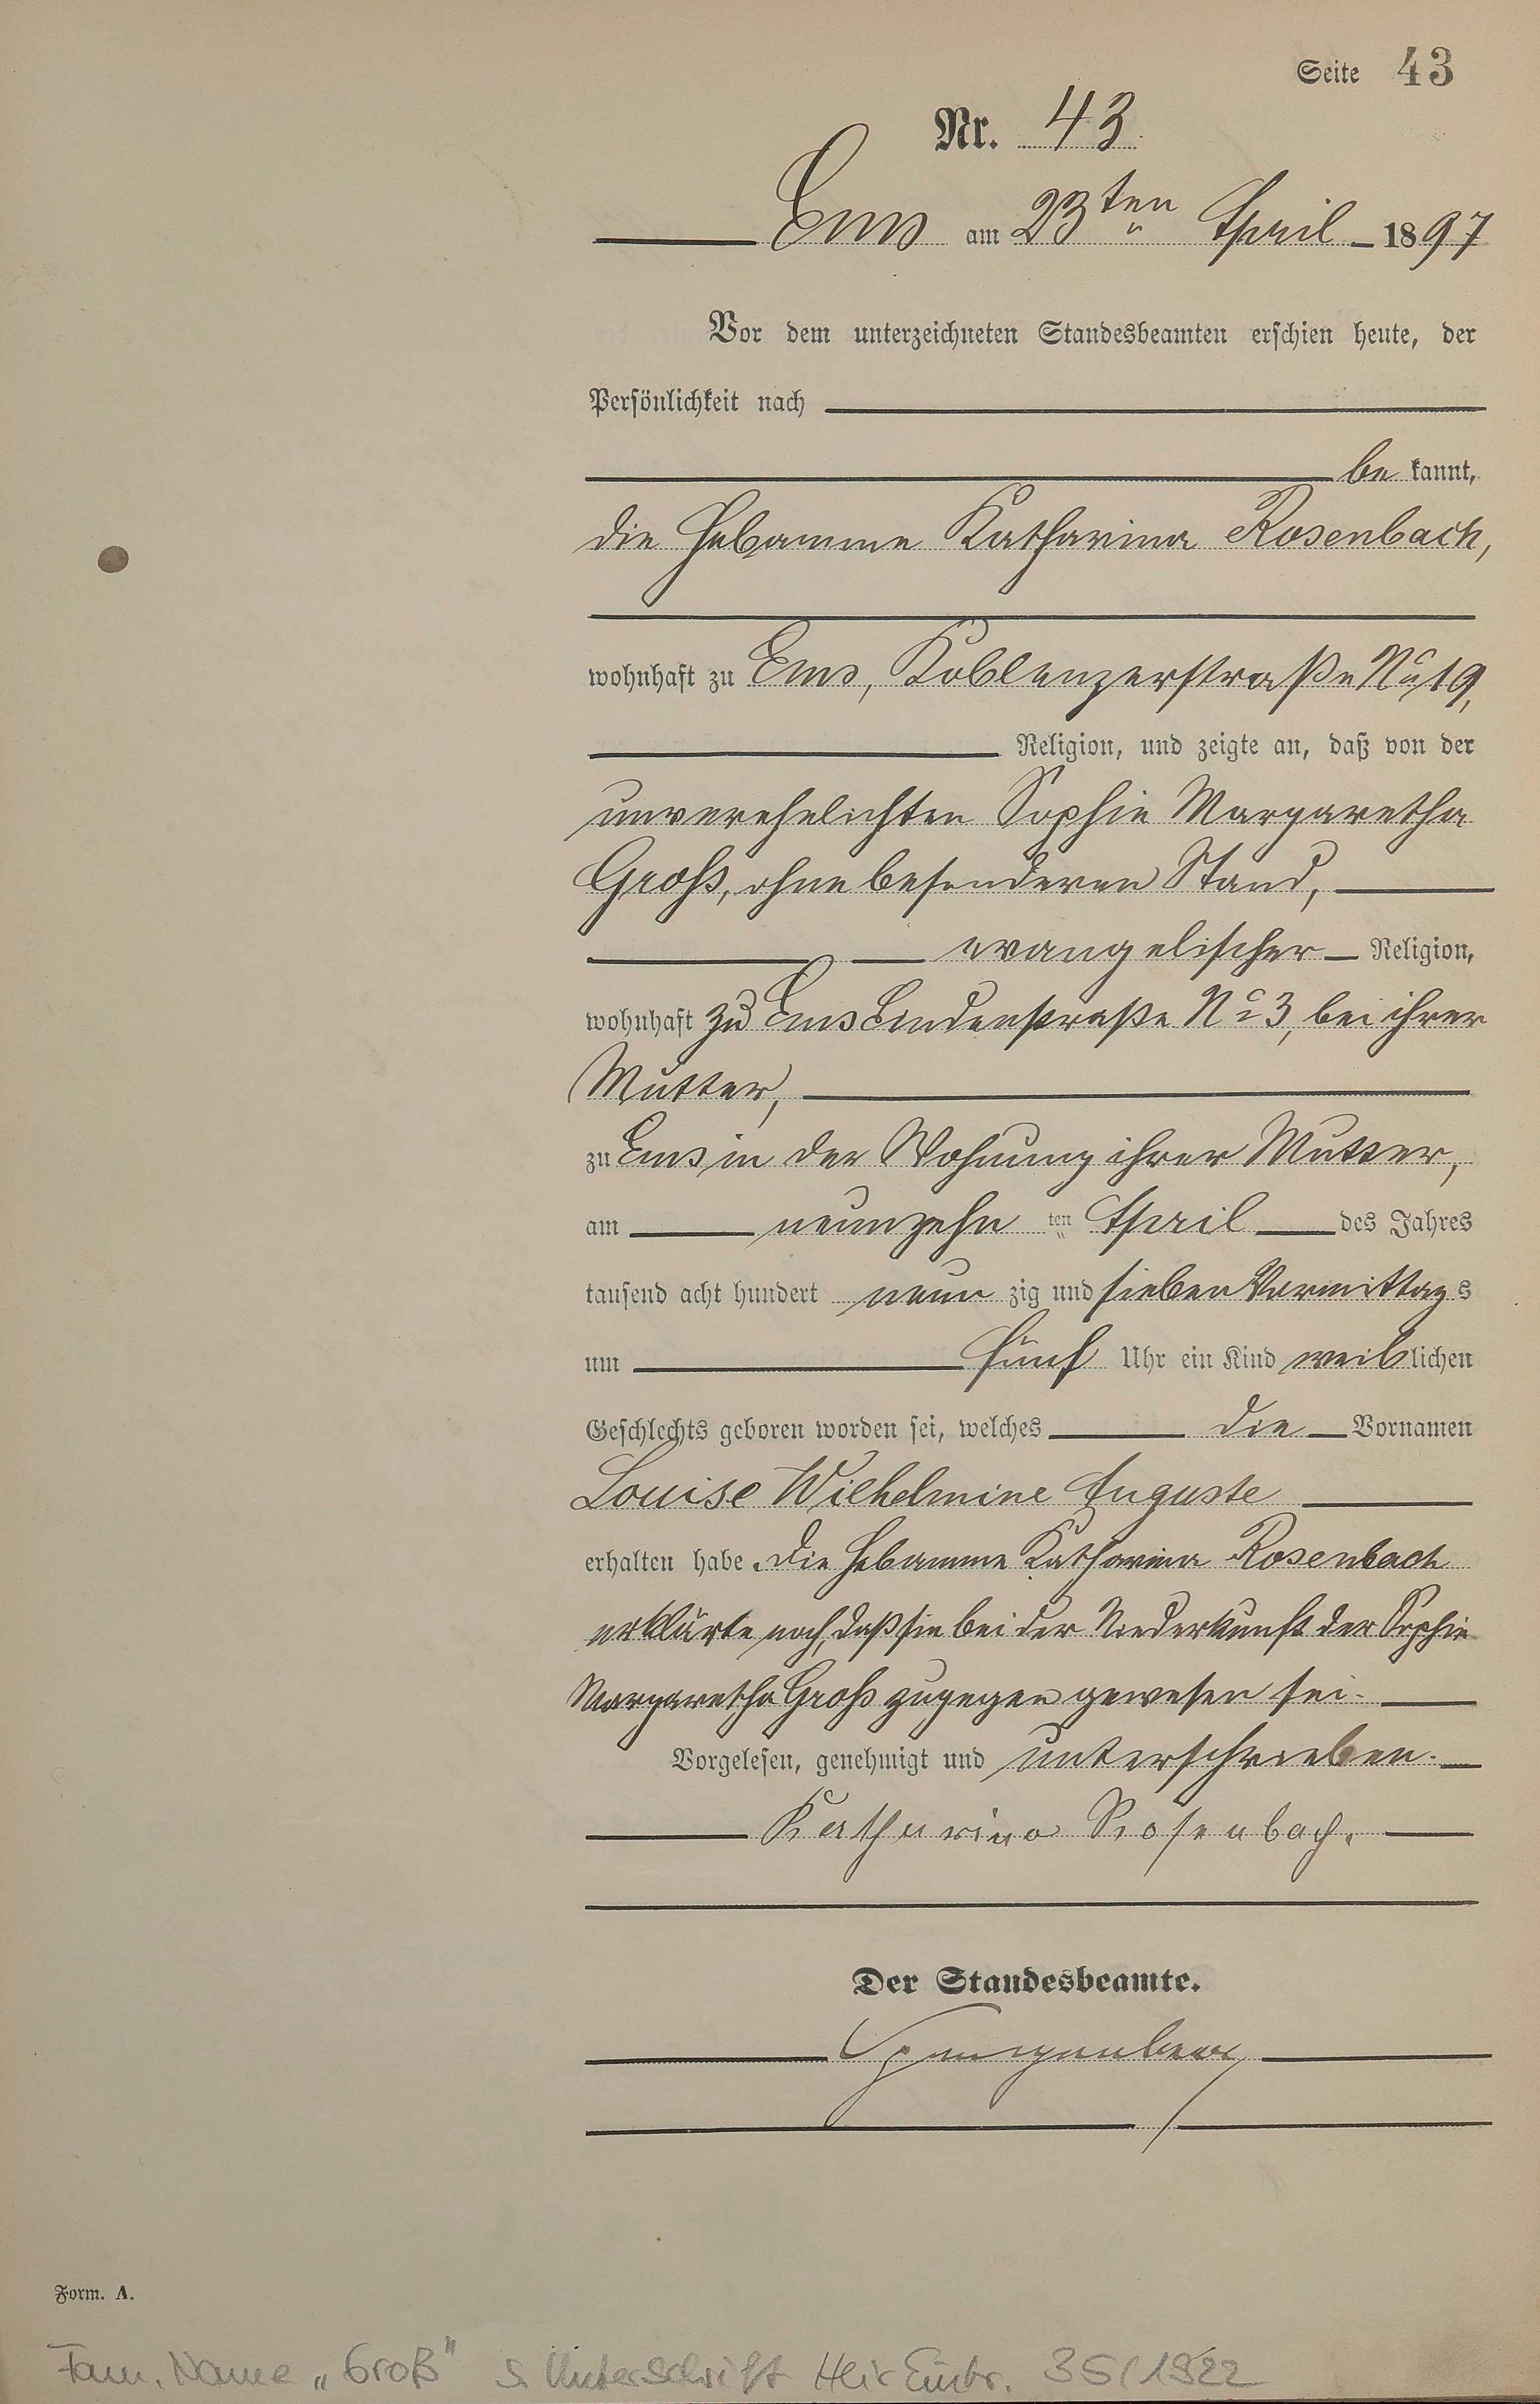 Seite 43
Nr. 43
Ems am 23ten April 1897
Vor dem unterzeichneten Standesbeamten erschien heute, der
Persönlichkeit nach
bekannt,
die Hebamme Katharina Rosenbach,
wohnhaft zu Ems, Koblenzerstraße No 19,
Religion, und zeigte an, daß von der
unverehelichten Sophie Margaretha
Groß, ohne besonderen Stand,
evangelischer Religion,
wohnhaft zu Ems Lindenstraße No 3, bei ihrer
Mutter,
zu Ems in der Wohnung ihrer Mutter,
am neunzehn ten April des Jahres
tausend acht hundert neunzig und sieben Vormittags
um fünf Uhr ein Kind weiblichen
Geschlechts geboren worden sei, welches die Vornamen
Louise Wilhelmine Auguste
erhalten habe. Die Hebamme Katharina Rosenbach
erklärte noch, daß sie bei der Niederkunft der Sophie
Margaretha Groß zugegen gewesen sei.
Vorgelesen, genehmigt und unterschrieben.
Katharina Rosenbach.
Der Standesbeamte.
Spangenberg
Form. A.
Fam. Name "Groß" s. Unterschrift Heir Eintr. 35/1922